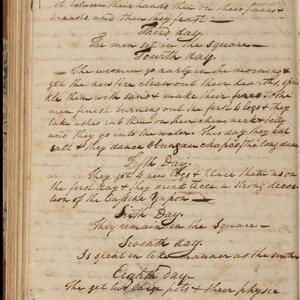 it between their hands then on their faces &
breasts, and then they feast —
Third day.
The men set in the Square —
Fourth day.
The women go early in the morning &
get the new fire clean out their hearths, sprin
kle them with sand & make their fires. The
men finish burning out the first 4 logs & they
take ashes rub them on their chin, neck & belly
and they go into the water. This day they eat
salt & they dance Obungau chapco, the long dance
Fifth Day.
They get 4 new logs & place them as on
the first day & they drink Acee a strong decoc
tion of the Cassine Yupon —
Sixth Day.
They remain in the Square —
Seventh day.
Is spent in like manner as the sixth
Eighth day.
The get two large pots & their physic